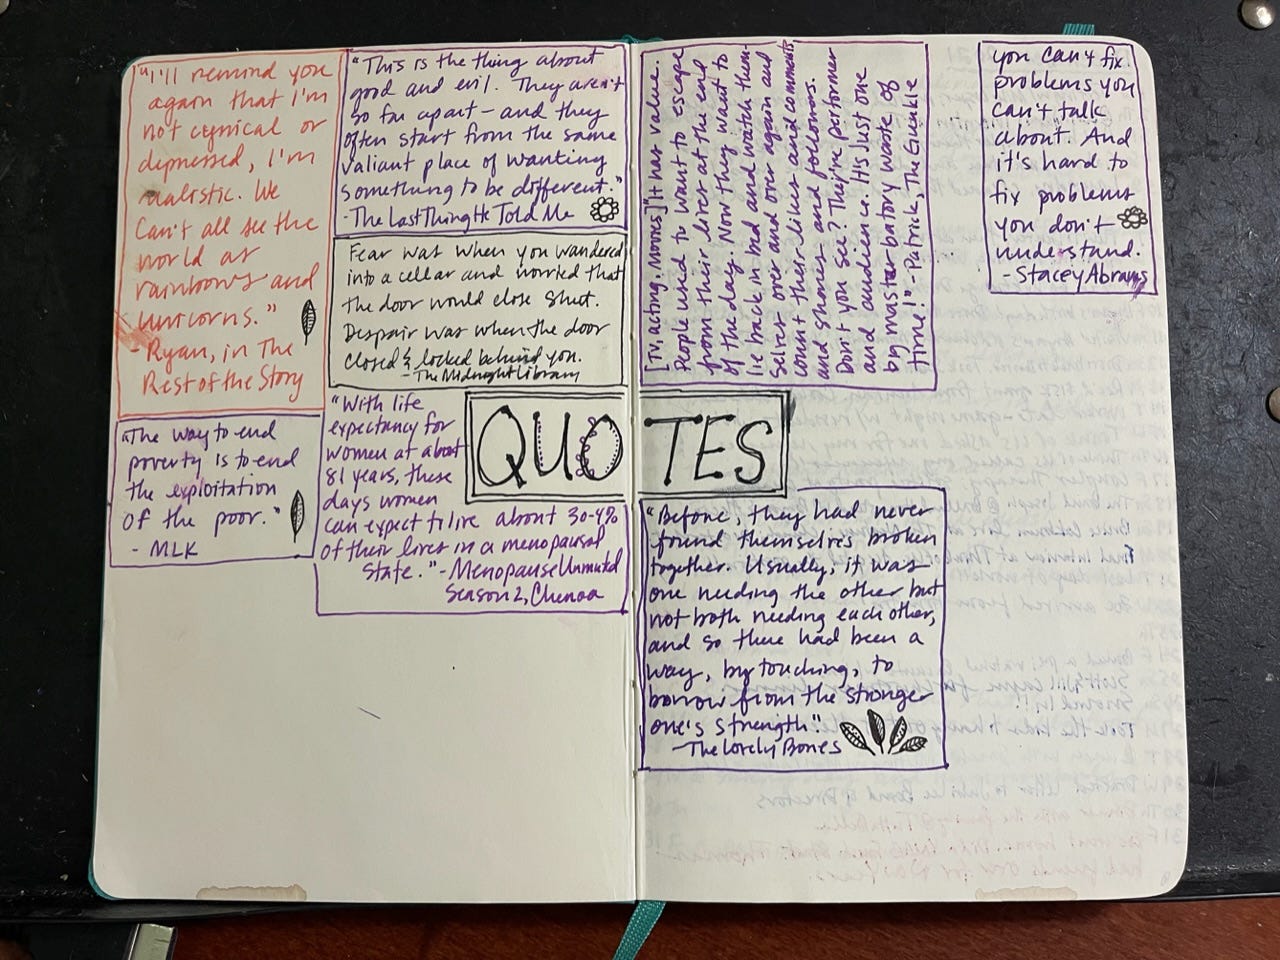 "I'll remind you
again that I'm
not cynical or
depressed, I'm
realistic. We
Can't all see the
world as
rainbows and
unicorns."
- Ryan, in The
Rest of the Story
"The way to end
poverty is to end
the exploitation
of the poor."
- MLK
"This is the thing about
good and evil. They aren't
so far apart - and they
often start from the same
valiant place of wanting
something to be different."
- The Last Thing He Told Me
Fear was when you wandered
into a cellar and worried that
the door would close shut.
Despair was when the door
closed & locked behind you.
- The Midnight Library
"With life
expectancy for
women at about
81 years, these
days women
can expect to live about 30-4%
of their lives in a menopausal
state." - Menopause Unmuted
Season 2, Chenoa
QUOTES
[TV, acting, movies] "It has value.
People used to want to escape
from their lives at the end
of the day. Now they want to
lie back in bed and watch them-
selves over and over again and
count their likes and comments
and shares and followers.
Don't you see? They're performer
and audience. It's just one
big masterbatory waste of
time!" Patrick, The Guncle
you can't fix
problems you
can't talk
about. And
it's hard to
fix problems
you don't
understand.
- Stacey Abrams
"Before, they had never
found themselves broken
together. Usually, it was
one needing the other but
not both needing each other,
and so there had been a
way, by touching, to
borrow from the stronger
one's strength."
- The Lovely Bones